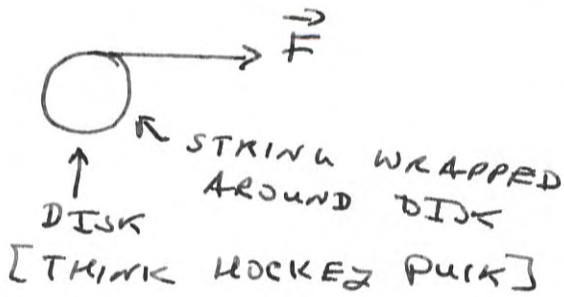 F
STRING WRAPPED
AROUND DISK
DISK
[THINK HOCKEY PUCK]